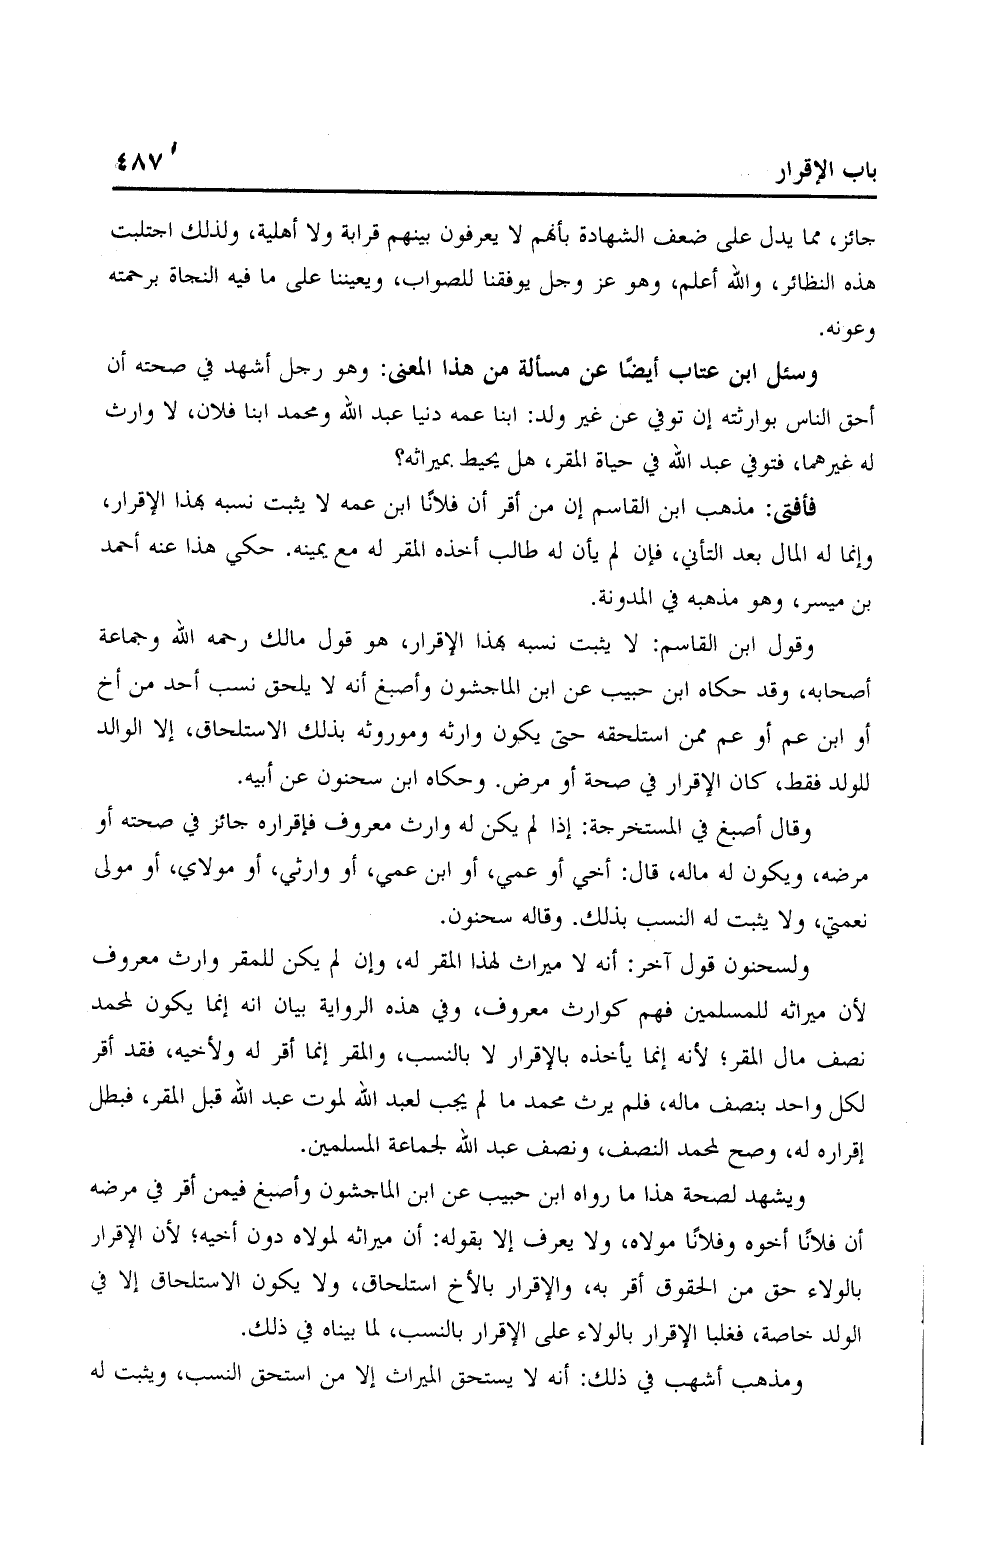 باب الإقرار ٤٨٧
جائز، مما يدل على ضعف الشهادة بأنهم لا يعرفون بينهم قرابة ولا أهلية، ولذلك اجتلبت
هذه النظائر، والله أعلم، وهو عز وجل يوفقنا للصواب، ويعيننا على ما فيه النجاة برحمته
وعونه.
وسئل ابن عتاب أيضًا عن مسألة من هذا المعنى: وهو رجل أشهد في صحته أن
أحق الناس بوارثته إن توفي عن غير ولد: ابنا عمه دنيا عبد الله ومحمد ابنا فلان، لا وارث
له غيرهما، فتوفي عبد الله في حياة المقر، هل يحيط بميراثه؟
فأفتى: مذهب ابن القاسم إن من أقر أن فلانًا ابن عمه لا يثبت نسبه بهذا الإقرار،
وإنما له المال بعد التأني، فإن لم يأن له طالب أخذه المقر له مع يمينه. حكي هذا عنه أحمد
بن ميسر، وهو مذهبه في المدونة.
وقول ابن القاسم: لا يثبت نسبه بهذا الإقرار، هو قول مالك رحمه الله وجماعة
أصحابه، وقد حكاه ابن حبيب عن ابن الماجشون وأصبغ أنه لا يلحق نسب أحد من أخ
أو ابن عم أو عم ممن استلحقه حتى يكون وارثه وموروثه بذلك الاستلحاق، إلا الوالد
للولد فقط، كان الإقرار في صحة أو مرض. وحكاه ابن سحنون عن أبيه.
وقال أصبغ في المستخرجة: إذا لم يكن له وارث معروف فإقراره جائز في صحته أو
مرضه، ويكون له ماله، قال: أخي أو عمي، أو ابن عمي، أو وارثي، أو مولاي، أو مولى
نعمتي، ولا يثبت له النسب بذلك. وقاله سحنون.
ولسحنون قول آخر: أنه لا ميراث لهذا المقر له، وإن لم يكن للمقر وارث معروف
لأن ميراثه للمسلمين فهم كوارث معروف، وفي هذه الرواية بيان انه إنما يكون لمحمد
نصف مال المقر؛ لأنه إنما يأخذه بالإقرار لا بالنسب، والمقر إنما أقر له ولأخيه، فقد أقر
لكل واحد بنصف ماله، فلم يرث محمد ما لم يجب لعبد الله لموت عبد الله قبل المقر، فبطل
إقراره له، وصح لمحمد النصف، ونصف عبد الله لجماعة المسلمين.
ويشهد لصحة هذا ما رواه ابن حبيب عن ابن الماجشون وأصبغ فيمن أقر في مرضه
أن فلانًا أخوه وفلانًا مولاه، ولا يعرف إلا بقوله: أن ميراثه لمولاه دون أخيه؛ لأن الإقرار
بالولاء حق من الحقوق أقر به، والإقرار بالأخ استلحاق، ولا يكون الاستلحاق إلا في
الولد خاصة، فغلبا الإقرار بالولاء على الإقرار بالنسب، لما بيناه في ذلك.
ومذهب أشهب في ذلك: أنه لا يستحق الميراث إلا من استحق النسب، ويثبت له